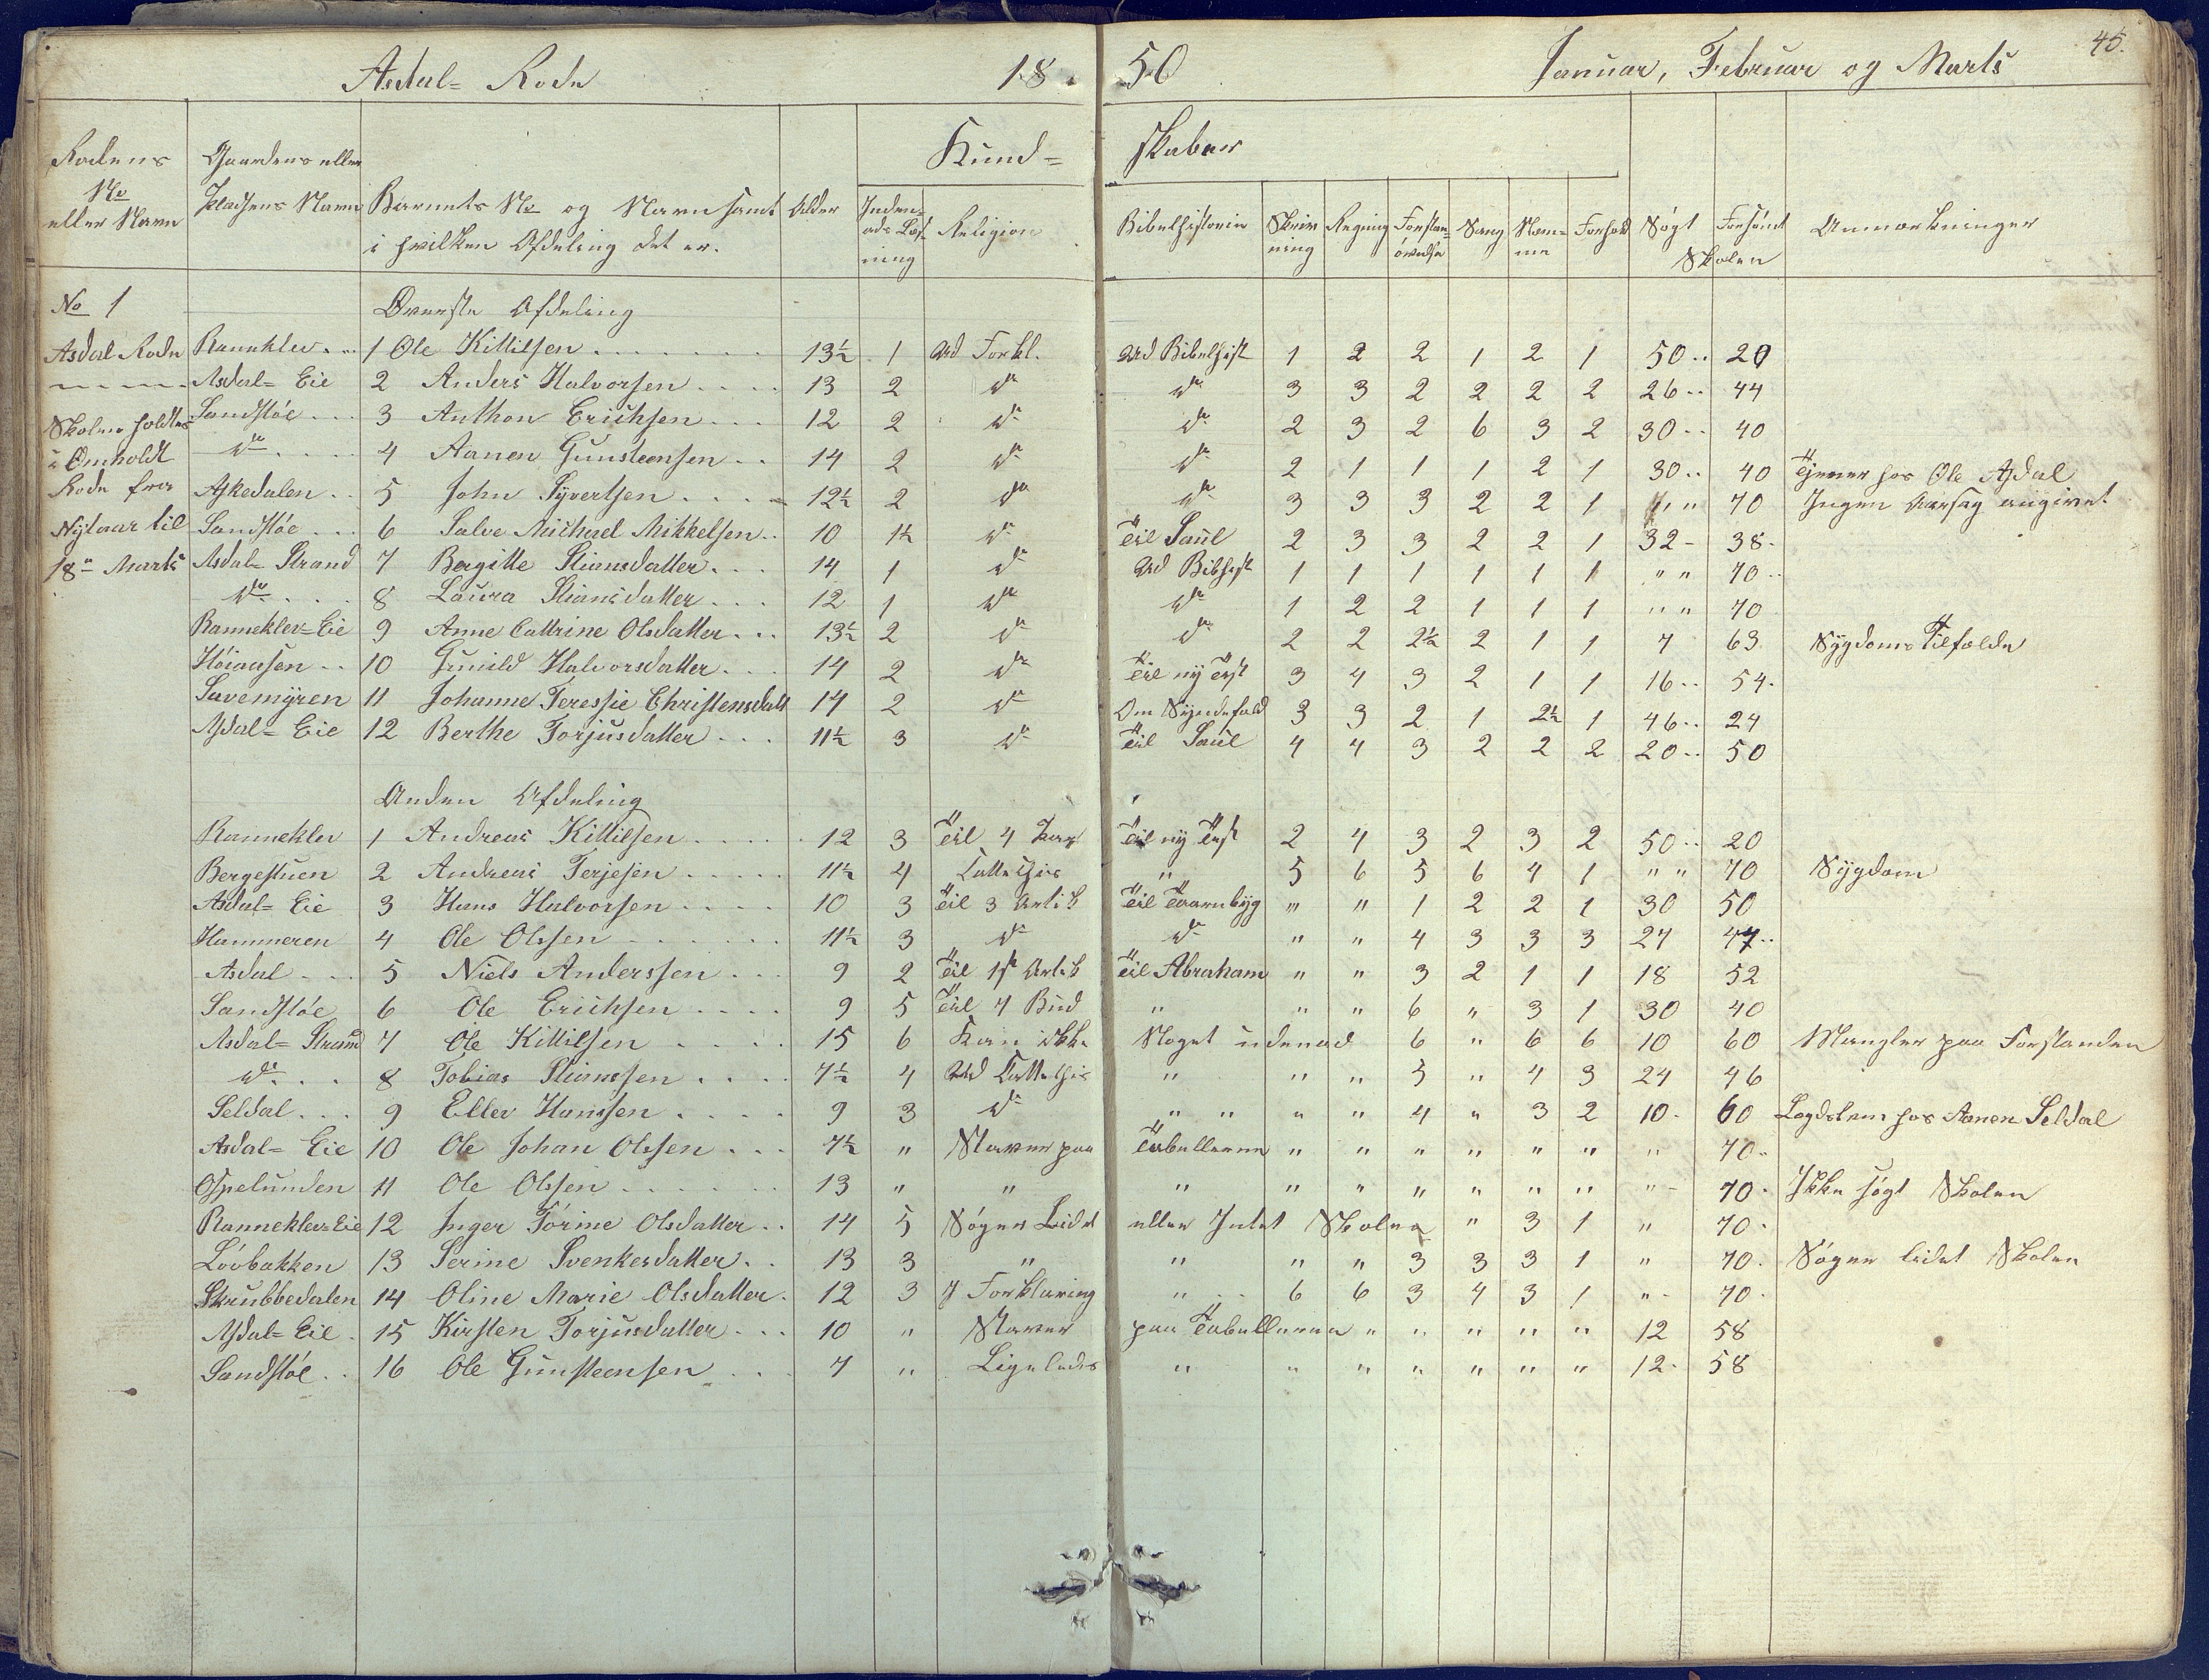 45.
Asdal= Rode 18 50 Januar, Februar og Marts
Kund= skaber
Rodens No eller Navn | Gaardens eller Pladsens Navn | Barnets No og Navn samt i hvilken Afdeling det er. | Alder | Inden= ads Læs= ning | Religion | Bibelhistorie | Skriv ning | Regning | Forstan= øvelse | Sang | Nem= me | Forhold | Søgt Skolen | Forsømt | Anmærkninger
No 1 Øverste Afdeling
Asdal Rode Ranneklev 1 Ole Kittilsen 13½ 1 Ud Forkl. Ud Bibelhist 1 2 2 1 2 1 50 20
Asdal= Eie 2 Anders Halvorsen 13 2 do do 3 3 2 2 2 2 26 44
Skolen holdtes Sandstøe 3 Anthon Erichsen 12 2 do do 2 3 2 6 3 2 30 40
i Omholdt do 4 Aanen Gunsteensen 14 2 do do 2 1 1 1 2 1 30 40 Tjener hos Ole Asdal
Rode fra Askedalen 5 John Syvertsen 12½ 2 do do 3 3 3 2 2 1 " " 70 Ingen Aarsag angivet
Nytaar til Sandstøe 6 Salve Michael Mikkelsen 10 1½ do Til Saul 2 3 3 2 2 1 32 38
18de Marts Asdal= Strand 7 Bergitte Stiansdatter 14 1 do Ud Bibhist 1 1 1 1 1 1 " " 70
do 8 Laura Stiansdatter 12 1 do do 1 2 2 1 1 1 " " 70
Ranneklev=Eie 9 Anne Cattrine Olsdatter 13½ 2 do do 2 2 2½ 2 1 1 7 63 Sygdoms Tilfælde
Høiaasen 10 Gunild Halvorsdatter 14 2 do Til ny Test 3 4 3 2 1 1 16 54
Savemyren 11 Johanne Teressie Christensdatt 14 2 do Om Syndefald 3 3 2 1 2½ 1 46 24
Asdal= Eie 12 Berthe Torjusdatter 11½ 3 do Til Saul 4 4 3 2 2 2 20 50
Anden Afdeling
Ranneklev 1 Andreas Kittilsen 12 3 Til 4 Part Til ny Test 2 4 3 2 3 2 50 20
Bergestuen 2 Andreas Terjesen 11½ 4 " 5 6 5 6 4 1 " " 70 Sygdom
Asdal= Eie 3 Hans Halvorsen 10 3 Til 3 Artik Til Taarnbyg " " 1 2 2 1 30 50
Hammeren 4 Ole Olssen 11½ 3 do do " " 4 3 3 3 27 47
Asdal 5 Niels Anderssen 9 2 Til 1st Artik Til Abraham " " 3 2 1 1 18 52
Sandstøe 6 Ole Erichsen 9 5 Til 4 Bud " " " 6 " 3 1 30 40
Asdal= Strand 7 Ole Kittilsen 15 6 Kan ikke Noget udenad 6 " 6 6 10 60 Mangler paa Forstanden
do 8 Tobias Stianssen 7½ 4 " " " 5 " 4 3 24 46
Seldal 9 Ellev Hanssen 9 3 do " " " " 4 " 3 2 10 60 Lægdslem hos Aanen Seldal
Asdal= Eie 10 Ole Johan Olssen 7½ " Staver paa Tabellerne " " " " " " " 70
Ospelunden 11 Ole Olssen 13 " " " " " " " " " " 70 Ikke søgt Skolen
Ranneklev=Eie 12 Inger Tørine Olsdatter 14 5 Søger Lidet eller Intet Skolen " 3 1 " 70
Løvbakken 13 Serine Svenkesdatter 13 3 " " " " 3 3 3 1 " 70 Søger lidet Skolen
Skrubbedalen 14 Oline Marie Olsdatter 12 3 I Forklaring " 6 6 3 4 3 1 " 70
Asdal= Eie 15 Kirsten Torjusdatter 10 " Staver paa Tabellerne " " " " " 12 58
Sandstøe 16 Ole Gunsteensen 7 " Ligeledes " " " " " " " 12 58